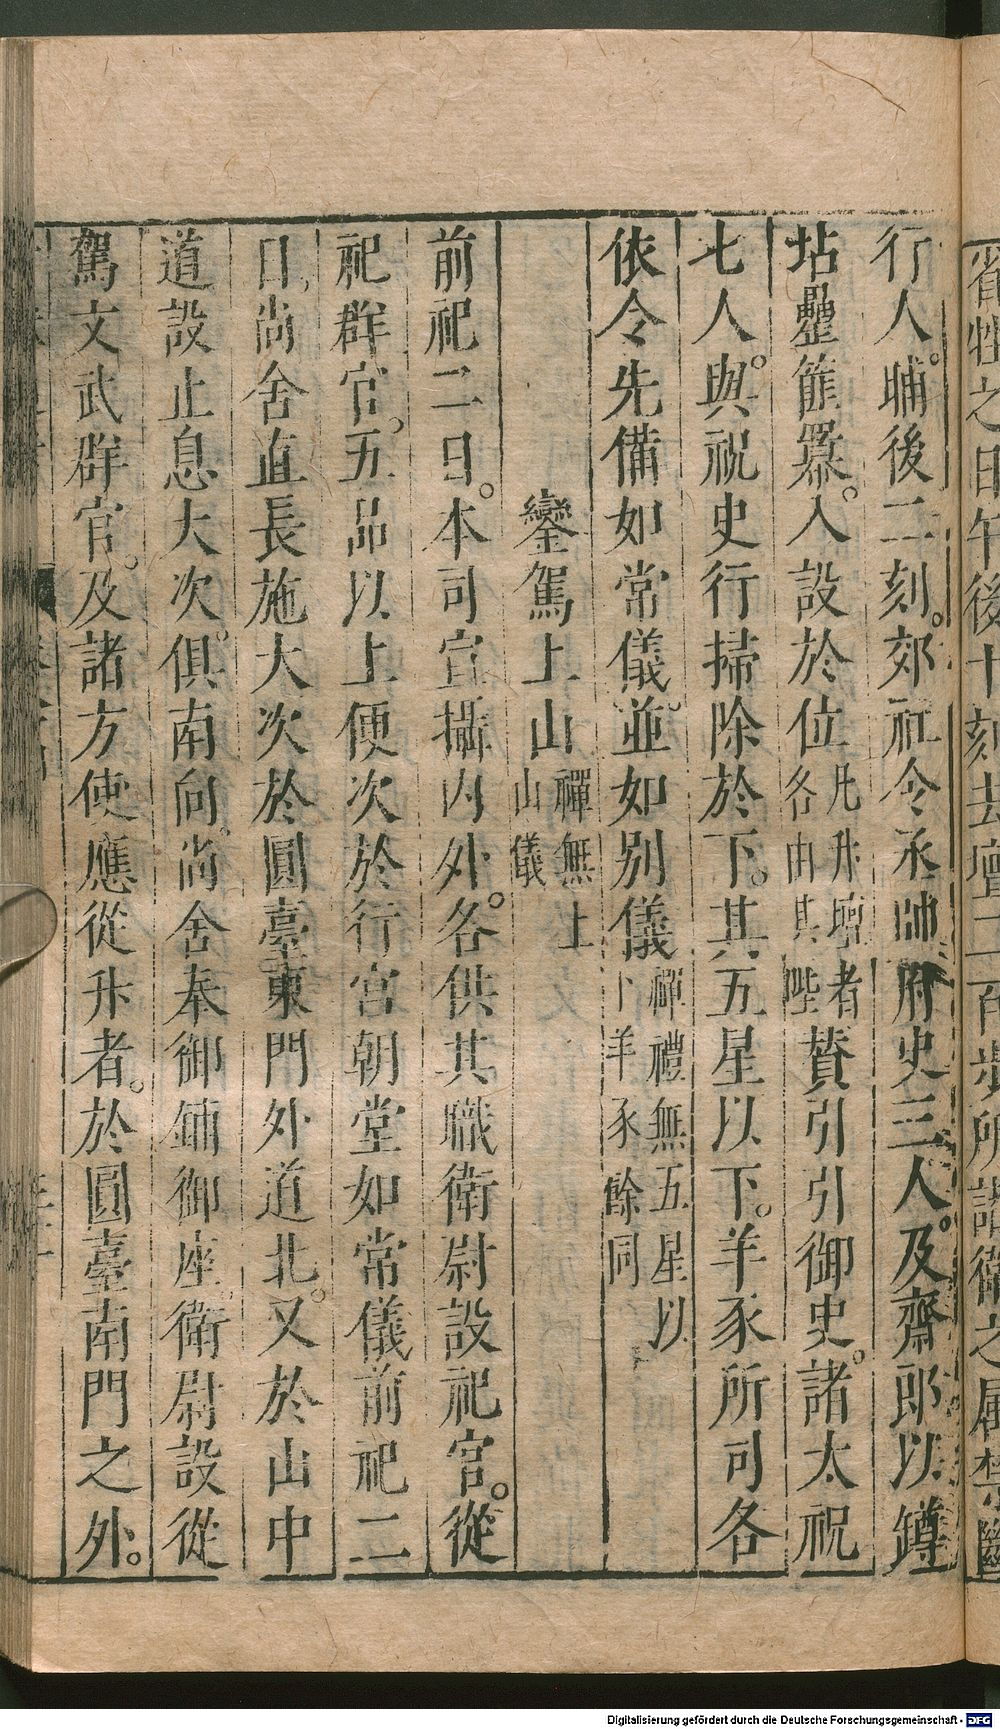 省牲之日午後十刻去壇二百步所諸衛之屬禁斷
行人。晡後二刻。郊社令丞帥府史三人。及齋郎以罇
坫罍篚羃。入設於位凡升壇者各由其陛賛引引御史。諸太祝
七人。與祝史行掃除於下。其五星以下。羊豕所司各
依令先備如常儀。並如別儀禪禮無五星以卜羊豕餘同
鑾駕上山禪無上山儀
前祀二日。本司宣攝內外。各供其職衛尉設祀官。從
祀群官。五品以上便次於行宮朝堂如常儀前祀二
日。尚舍直長施大次於圓臺東門外道北。又於山中
道設止息大次。俱南向。尚舍奉御鋪御座。衛尉設從
駕文武群官。及諸方使應從升者。於圓臺南門之外。
Digitalisierung gefördert durch die Deutsche Forschungsgemeinschaft - DFG